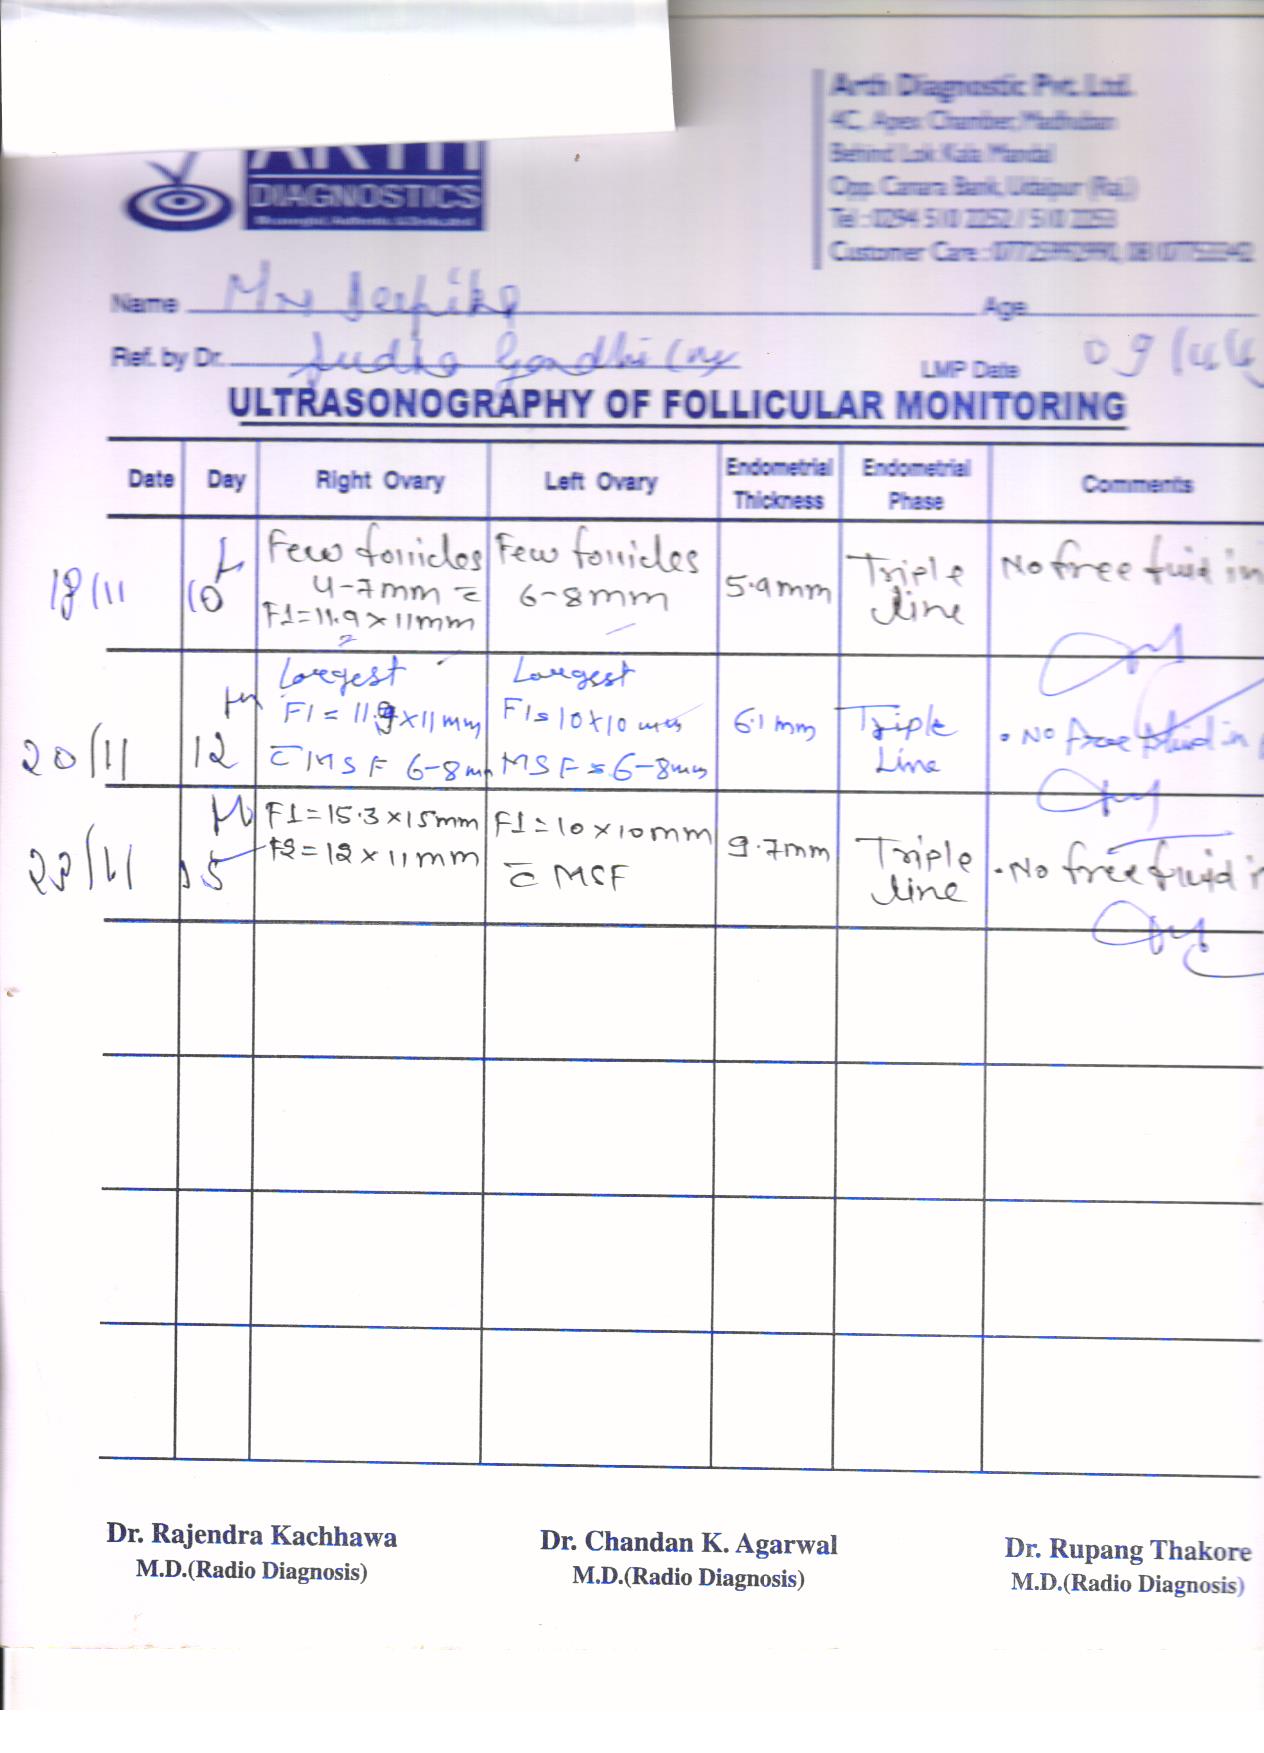 DIAGNOSTICS
Arth Diagnostic Pvt. Ltd.
4C, Apex Chamber, Madhuban
Behind Lok Kala Mandal
Opp. Canara Bank, Udaipur (Raj.)
Tel : 0294 510 2252 / 510 2253
Customer Care :
Name Age
Ref. by Dr. Gandhi LMP Date 09/11
ULTRASONOGRAPHY OF FOLLICULAR MONITORING
Date Day Right Ovary Left Ovary Endometrial Thickness Endometrial Phase Comments
18/11 10 Few follicles 4-7mm c̄ F1=11.9×11mm Few follicles 6-8mm 5.9mm Triple line No free fluid in
20/11 12 Largest F1=11.9×11mm c̄ MSF 6-8mm Largest F1=10×10mm MSF=6-8mm 6.1mm Triple Line • No free fluid in
15 F1=15.3×15mm F2=12×11mm F1=10×10mm c̄ MSF 9.7mm Triple line • No free fluid in
Dr. Rajendra Kachhawa
M.D.(Radio Diagnosis)
Dr. Chandan K. Agarwal
M.D.(Radio Diagnosis)
Dr. Rupang Thakore
M.D.(Radio Diagnosis)